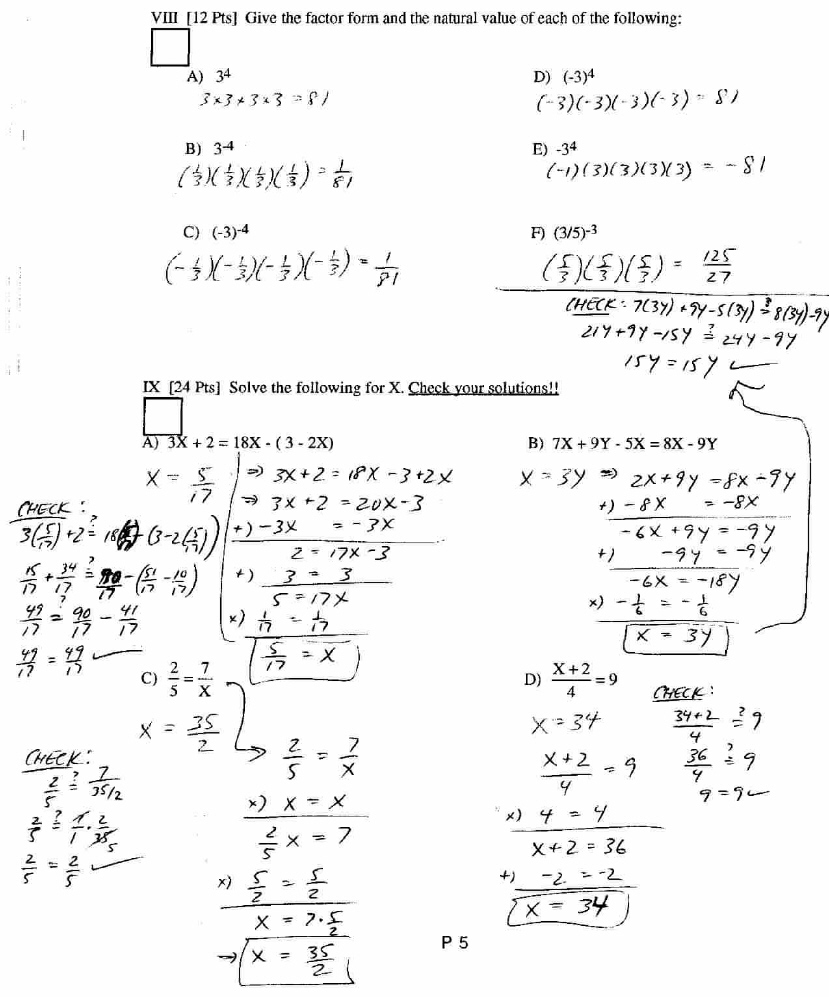 VIII [12 Pts] Give the factor form and the natural value of each of the following:
A) 3⁴
3×3×3×3 = 81
D) (-3)⁴
(-3)(-3)(-3)(-3) = 81
B) 3⁻⁴
(1/3)(1/3)(1/3)(1/3) = 1/81
E) -3⁴
(-1)(3)(3)(3)(3) = -81
C) (-3)⁻⁴
(-1/3)(-1/3)(-1/3)(-1/3) = 1/81
F) (3/5)⁻³
(5/3)(5/3)(5/3) = 125/27
CHECK: 7(3Y)+9Y-5(3Y) ?= 8(3Y)-9Y
21Y+9Y-15Y ?= 24Y-9Y
15Y = 15Y ✓
IX [24 Pts] Solve the following for X. Check your solutions!!
A) 3X + 2 = 18X - ( 3 - 2X)
X = 5/17
⇒ 3X+2 = 18X-3+2X
⇒ 3X+2 = 20X-3
+) -3X = -3X
2 = 17X-3
+) 3 = 3
5 = 17X
×) 1/17 = 1/17
5/17 = X
CHECK:
3(5/17)+2 ?= 18(5/17)-(3-2(5/17))
15/17 + 34/17 ?= 90/17 - (51/17 - 10/17)
49/17 ?= 90/17 - 41/17
49/17 = 49/17 ✓
B) 7X + 9Y - 5X = 8X - 9Y
X = 3Y ⇒ 2X+9Y = 8X-9Y
+) -8X = -8X
-6X+9Y = -9Y
+) -9Y = -9Y
-6X = -18Y
×) -1/6 = -1/6
X = 3Y
C) 2/5 = 7/X
X = 35/2
2/5 = 7/X
×) X = X
2/5 X = 7
×) 5/2 = 5/2
X = 7·5/2
→ X = 35/2
CHECK:
2/5 ?= 7/35/2
2/5 ?= 7/1 · 2/35 5
2/5 = 2/5 ✓
D) X+2/4 = 9
X = 34
X+2/4 = 9
×) 4 = 4
X+2 = 36
+) -2 = -2
X = 34
CHECK:
34+2/4 ?= 9
36/4 ?= 9
9 = 9 ✓
P 5